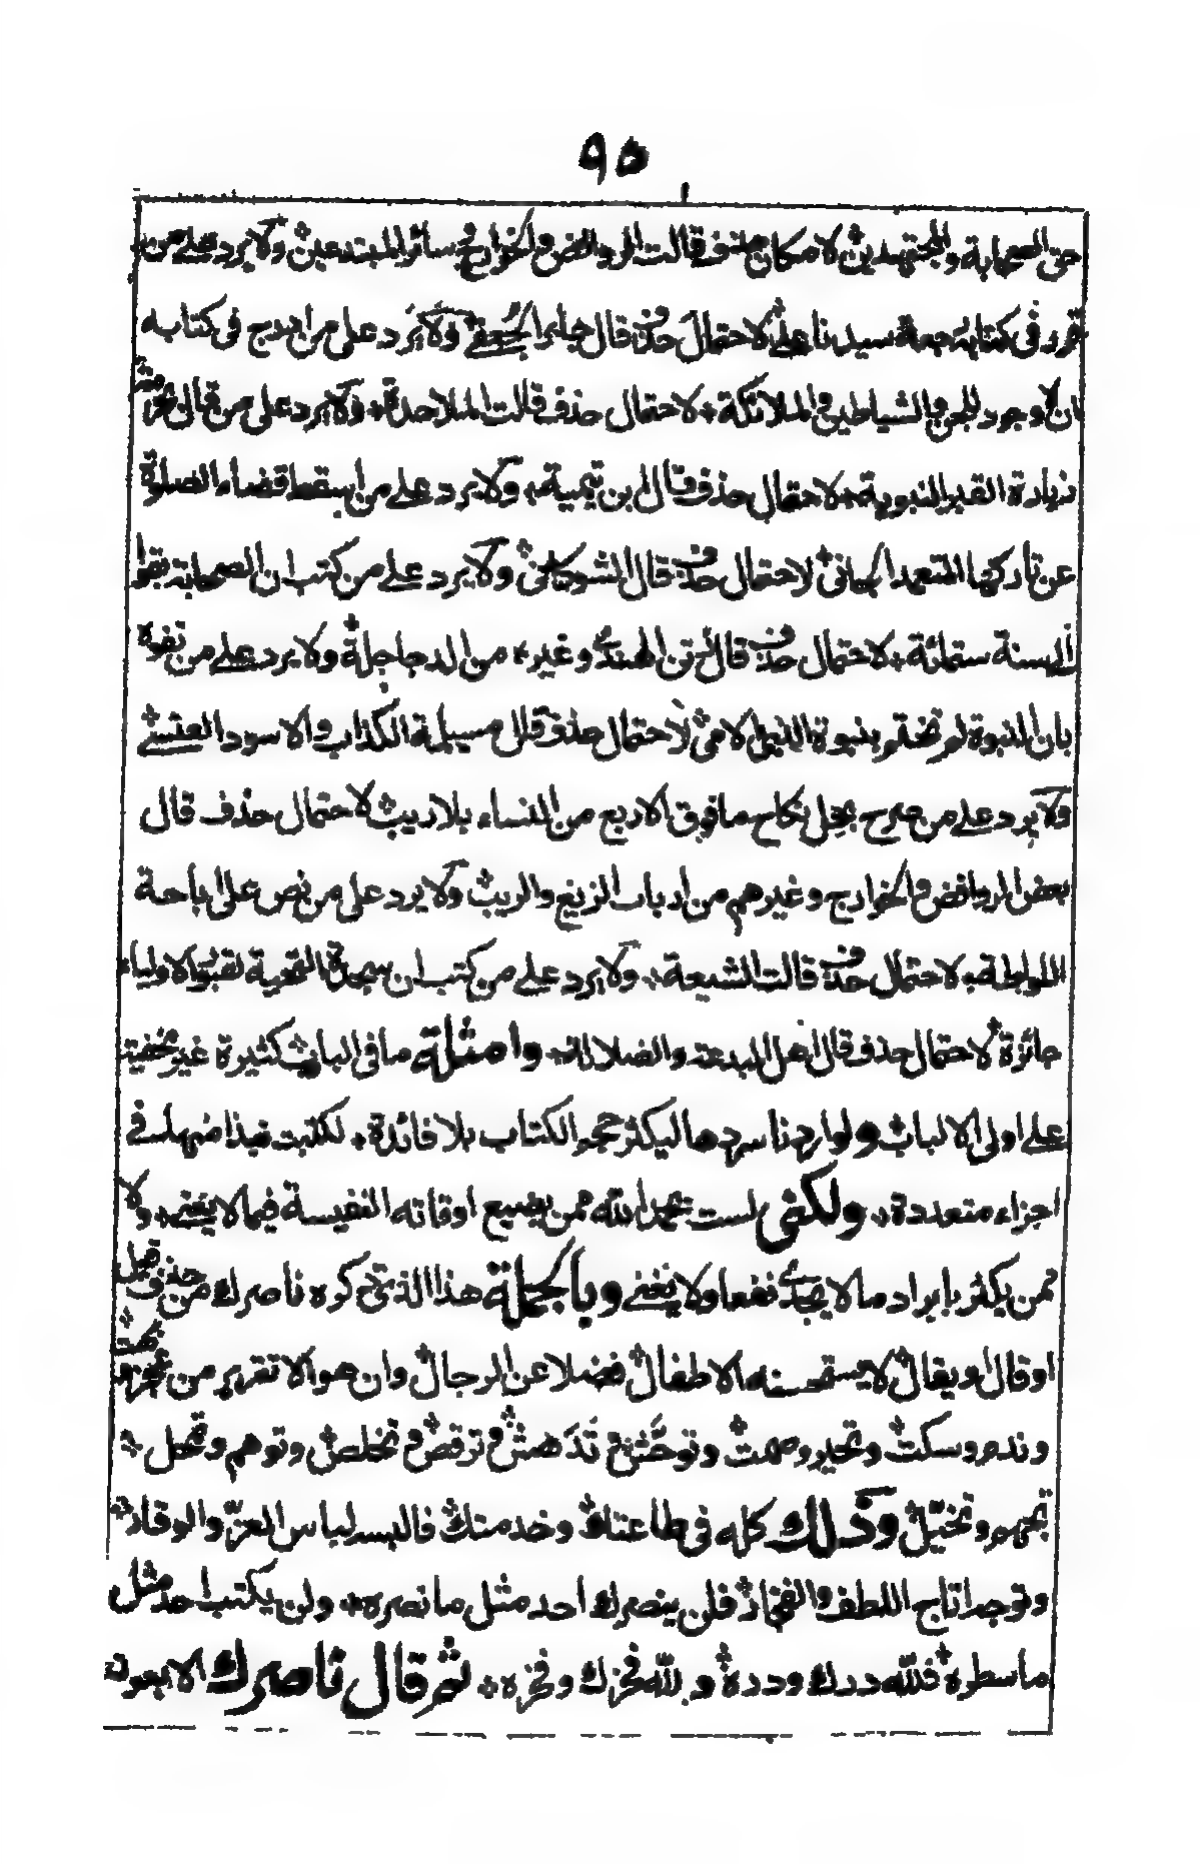 ٩٥
حق الصحابة والمجتهدين لامكان حذف قالت الروافض والخوارج وسائر المبتدعين ولا يرد على من
في كتابه سيدنا علي لاحتمال حذف قال جابر الجعفي ولا يرد على من ادرج في كتابه
ان لا وجود للجن والشياطين والملائكة لاحتمال حذف قالت الملاحدة ولا يرد على من قال
زيارة القبر النبوية لاحتمال حذف قال ابن تيمية ولا يرد على من اسقط قضاء الصلوة
عن تاركها المتعمد الجاني لاحتمال حذف قال الشوكاني ولا يرد على من كتب ان الصحابة بقوا
الى سنة ستمائة لاحتمال حذف قال رتن الهندي وغيره من الدجاجلة ولا يرد على من تفوه
بان النبوة لم تختم بنبوة النبي الامي لاحتمال حذف قال مسيلمة الكذاب والاسود العنسي
ولا يرد على من صرح بحل نكاح ما فوق الاربع من النساء بلا ريب لاحتمال حذف قال
بعض الروافض والخوارج وغيرهم من ارباب الزيغ والريب ولا يرد على من نص على اباحة
اللواطة لاحتمال حذف قالت الشيعة ولا يرد على من كتب ان سجدة التحية لقبور الاولياء
جائزة لاحتمال حذف قال اهل البدعة والضلالة وامثلة ما في الباب كثيرة غير مخفية
على اولى الالباب ولو اردنا سردها ليكثر حجم الكتاب بلا فائدة لكتبت نبذا منها في
اجزاء متعددة ولكني لست بحمد الله ممن يضيع اوقاته النفيسة فيما لا يعنى ولا
ممن يكثر بايراد ما لا يجدي نفعا ولا يغنى وبالجملة هذا الذي ذكره ناصرك من حذف قيل
او قال او يقال لا يستحسنه الاطفال فضلا عن الرجال وان هو الا تقرير من
وندم وسكت وتحير وصمت وتوحش وتدهش وترقص وتخلص وتوهم وتمحل
وتخيل وذلك كله في طاعتك وخدمتك فالبس لباس العز والوقار
وتوجد اتاج اللطف والفخار فلن ينصرك احد مثل ما نصره ولن يكتب احد مثل
ما سطره فلله درك ودره ولله فخرك وفخره ثم قال ناصرك الا بعون